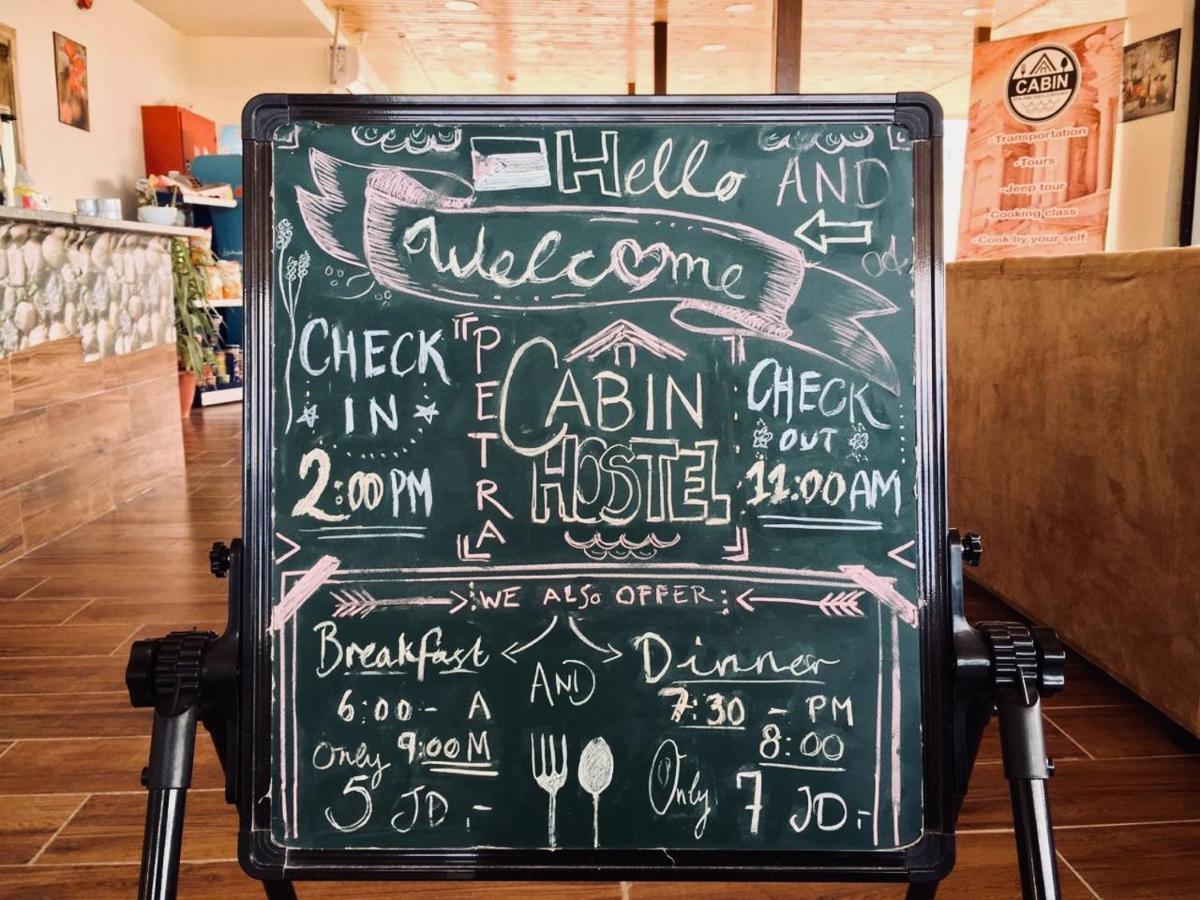 Hello AND
Welcome
CHECK
IN
2:00 PM
PETRA
CABIN
HOSTEL
CHECK
OUT
11:00 AM
WE ALSO OFFER:
Breakfast
6:00 - A
9:00 M
Only
5 JD -
AND
Dinner
7:30 - PM
8:00
Only
7 JD -
CABIN
-Transportation
-Tours
-Jeep tour
-Cooking class
-Cook by your self